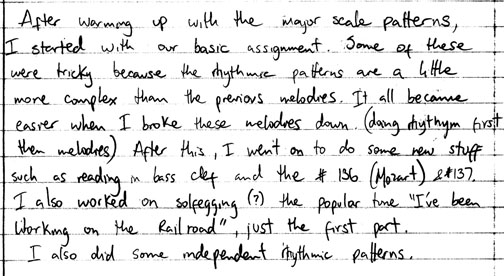 After warming up with the major scale patterns,
I started with our basic assignment. Some of these
were tricky because the rhythmic patterns are a little
more complex than the previous melodies. It all became
easier when I broke these melodies down. (doing rhythym first
then melodies) After this, I went on to do some new stuff
such as reading in bass clef and the # 136 (Mozart) & #137.
I also worked on solfegging (?) the popular tune "I've been
Working on the Railroad", just the first part.
I also did some independent rhythmic patterns.